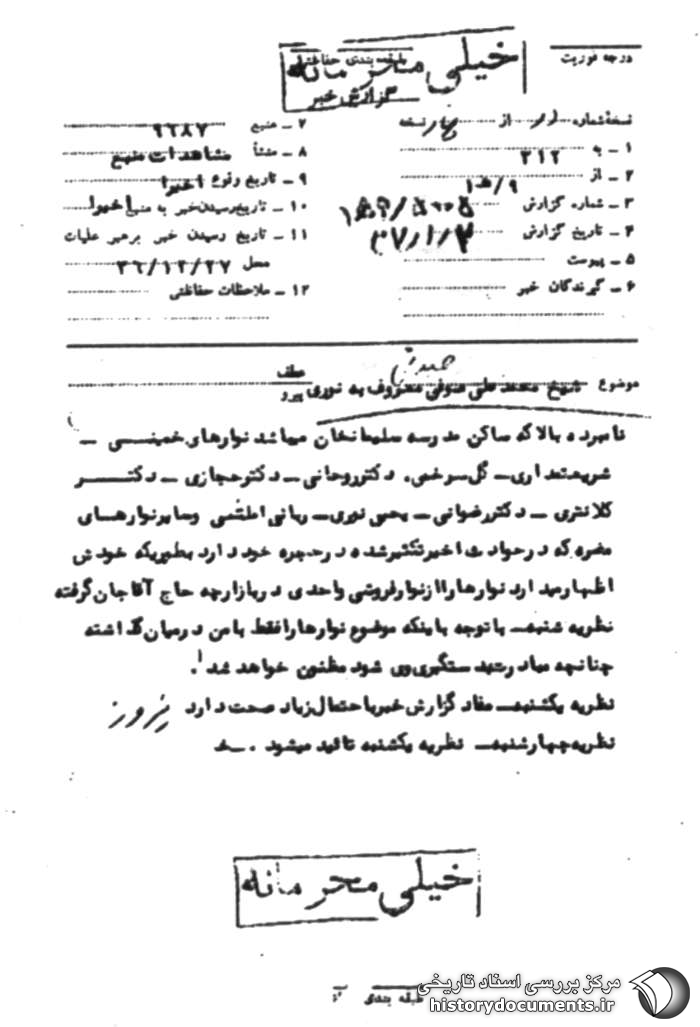 درجه فوریت
طبقه بندی حفاظتی
خیلی محرمانه
گزارش خبر
نسخهٔ شماره از نسخه
۱ ــ به ۳۱۲
۲ ــ از ۹/ه‍ ۱
۳ ــ شماره گزارش
۴ ــ تاریخ گزارش ۳۷/۱/۳
۵ ــ پیوست
۶ ــ گیرندگان خبر
۷ ــ منبع ۹۶۸۷
۸ ــ منشأ مشاهدات منبع
۹ ــ تاریخ وقوع اخیرا
۱۰ ــ تاریخ رسیدن خبر به منبع اخیرا
۱۱ ــ تاریخ رسیدن خبر برهبر عملیات
محل ۳۶/۱۲/۲۷
۱۲ ــ ملاحظات حفاظتی
موضوع شیخ محمد علی صوفی معروف به نوری
عطف
پیرو
نامبرده بالا که ساکن مدرسه سلیمانخان میباشد نوارهای خمینــی ــ
شریعتمداری ــ گل سرخی. دکتر روحانی ــ دکتر حجازی ــ دکتــر
کلانتری ــ دکتر رضوانی ــ یحیی نوری ــ ربانی املشی وسایر نوارهــای
مضره که در حوادث اخیر تکثیر شده در حجره خود دارد بطوریکه خودش
اظهار میدارد نوارها را از نوار فروشی واحدی در بازارچه حاج آقاجان گرفته
نظریه شنبه‌ــ با توجه باینکه موضوع نوارها را فقط با من در میان گذاشته
چنانچه مبادرت بدستگیری وی شود مظنون خواهد شد.
نظریه یکشنبه‌ــ مفاد گزارش خبر با احتمال زیاد صحت دارد
نظریه چهارشنبه‌ــ نظریه یکشنبه تائید میشود .ــ خ
خیلی محرمانه
طبقه بندی
مرکز بررسی اسناد تاریخی
historydocuments.ir